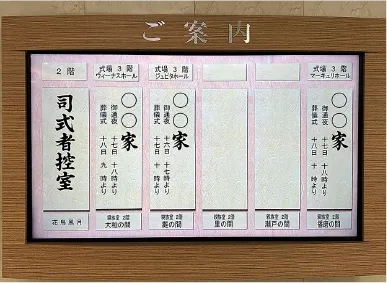 ご案内
2階
司式者控室
花鳥風月
式場 3階
ヴィーナスホール
○○家
御通夜 十七日 十八時より
葬儀式 十八日 九時より
親族室 2階
大和の間
式場 3階
ジュピタホール
○○家
御通夜 十六日 十七時より
葬儀式 十七日 十時より
親族室 2階
の間
親族室 2階
里の間
親族室 2階
瀬戸の間
式場 3階
マーキュリホール
○○家
御通夜 十七日 十八時より
葬儀式 十八日 十時より
親族室 2階
播磨の間